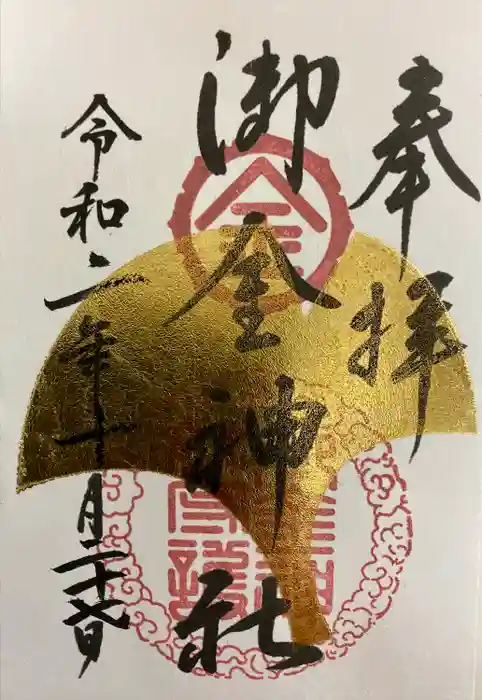 奉拝
御金神社
令和二年十一月二十六日
金